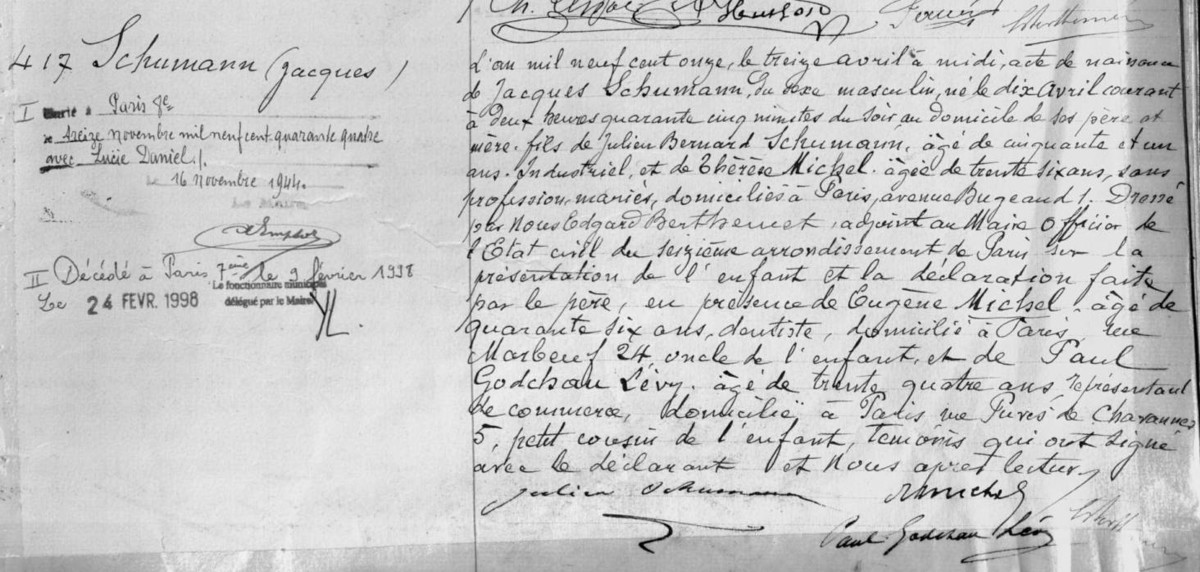 417 Schumann (Jacques)
I Marié à Paris 7e
le treize novembre mil neuf cent quarante quatre
avec Lucie Daniel ./.
Le 16 Novembre 1944.
Le Maire
II Décédé à Paris 7ème le 9 février 1998
Le 24 FEVR. 1998
Le fonctionnaire municipal
délégué par le Maire
L'an mil neuf cent onze, le treize avril à midi, acte de naissance
de Jacques Schumann, du sexe masculin, né le dix Avril courant
à Deux heures quarante cinq minutes du soir au domicile de ses père et
mère. fils de Julien Bernard Schumann, âgé de cinquante et un
ans. Industriel, et de Thérèse Michel. âgée de trente six ans, sans
profession, mariés, domiciliés à Paris, avenue Bugeaud 1. Dressé
par Nous Edgard Berthemet, adjoint au Maire Officier de
l'Etat civil du seizième arrondissement de Paris sur la
présentation de l'enfant et la déclaration faite
par le père, en présence de Eugène Michel. âgé de
quarante six ans, dentiste, domicilié à Paris, rue
Marbeuf 24 oncle de l'enfant, et de Paul
Godchau Lévy. âgé de trente quatre ans, représentant
de commerce, domicilié à Paris rue de Chavannes
5, petit cousin de l'enfant, témoins qui ont signé
avec le déclarant et Nous après lecture
Julien Schumann Michel
Paul Godchau Lévy